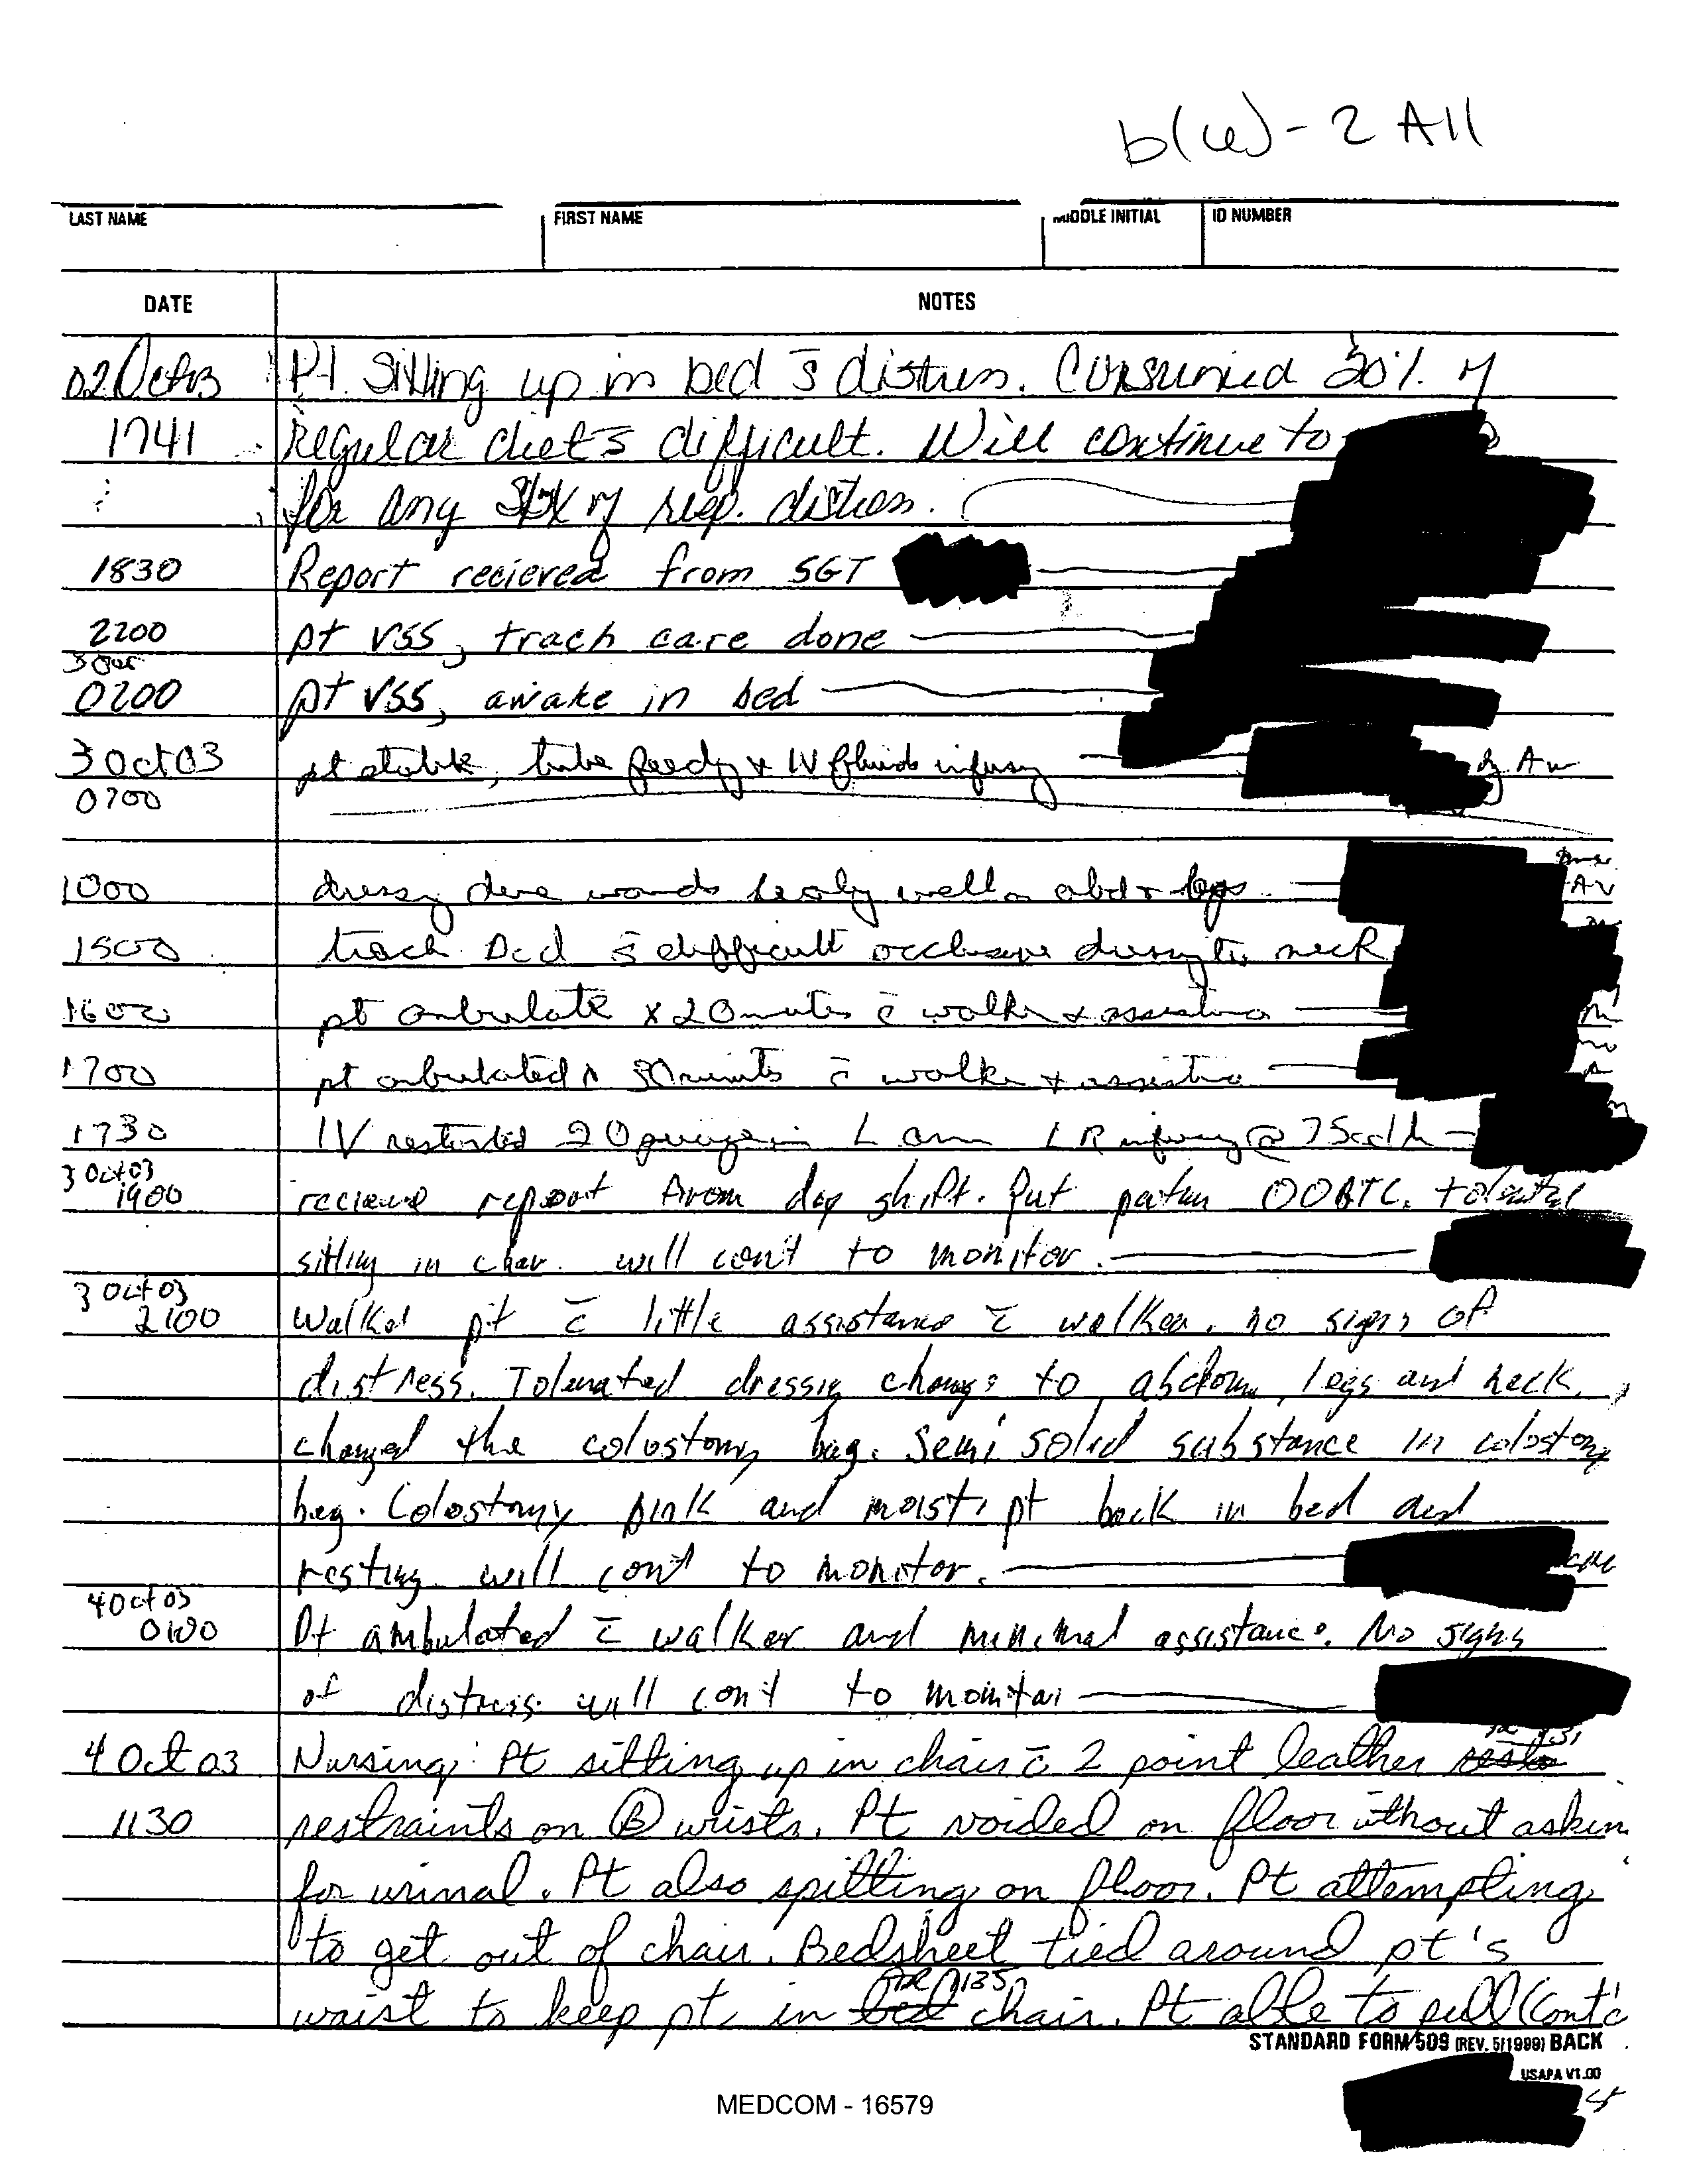 b(6)-2 All
LAST NAME FIRST NAME MIDDLE INITIAL ID NUMBER
DATE NOTES
02 Oct 03 Pt. Sitting up in bed s̄ distress. Consumed 50% of
1741 regular diet s̄ difficult. Will continue to
for any S/Sx of resp. distress.
1830 Report recieved from SGT
2200 pt VSS, trach care done
3 Oct
0200 pt VSS, awake in bed
3 Oct 03 pt stable, tube feedg + IV fluids infusg
0700
1000 dressg done wounds healg well on abd + legs.
1500 trach Dcd s̄ difficult occlusive dressg to neck
1600 pt ambulate x 20 minutes c̄ walker + assistance
1700 pt ambulated x 30 minutes c̄ walker + assistance
1730 IV restarted 20 gauge in L arm LR infusg @ 75cc/h
3 Oct 03
1900 recieved report from day shift. Put patien OOBTC. tolerated
sitting in chair. will con't to monitor.
3 Oct 03
2100 Walked pt c̄ little assistance c̄ walker. no signs of
distress. Tolerated dressig change to abdom, legs and neck.
changed the colostomy bag. Semi solid substance in colostomy
bag. Colostomy pink and moist. pt back in bed and
resting. will con't to monitor.
4 Oct 03
0100 Pt ambulated c̄ walker and minimal assistance. No signs
of distress. will con't to monitor
4 Oct 03 Nursing: Pt sitting up in chair c̄ 2 point leather
1130 restraints on Ⓑ wrists. Pt voided on floor without askin
for urinal. Pt also spitting on floor. Pt attempting
to get out of chair. Bedsheet tied around pt's
1135
waist to keep pt in bed chair. Pt able to pull (Cont'd
STANDARD FORM 509 (REV. 5/1999) BACK
USAPA V1.00
MEDCOM - 16579